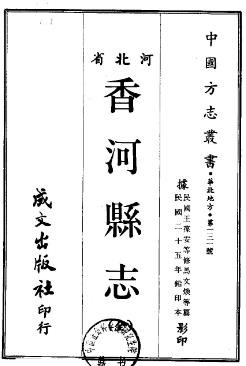 中國方志叢書・華北地方・第一三一號
據民國王葆安等修馬文煥等纂
民國二十五年鉛印本影印
河北省
香河縣志
成文出版社印行